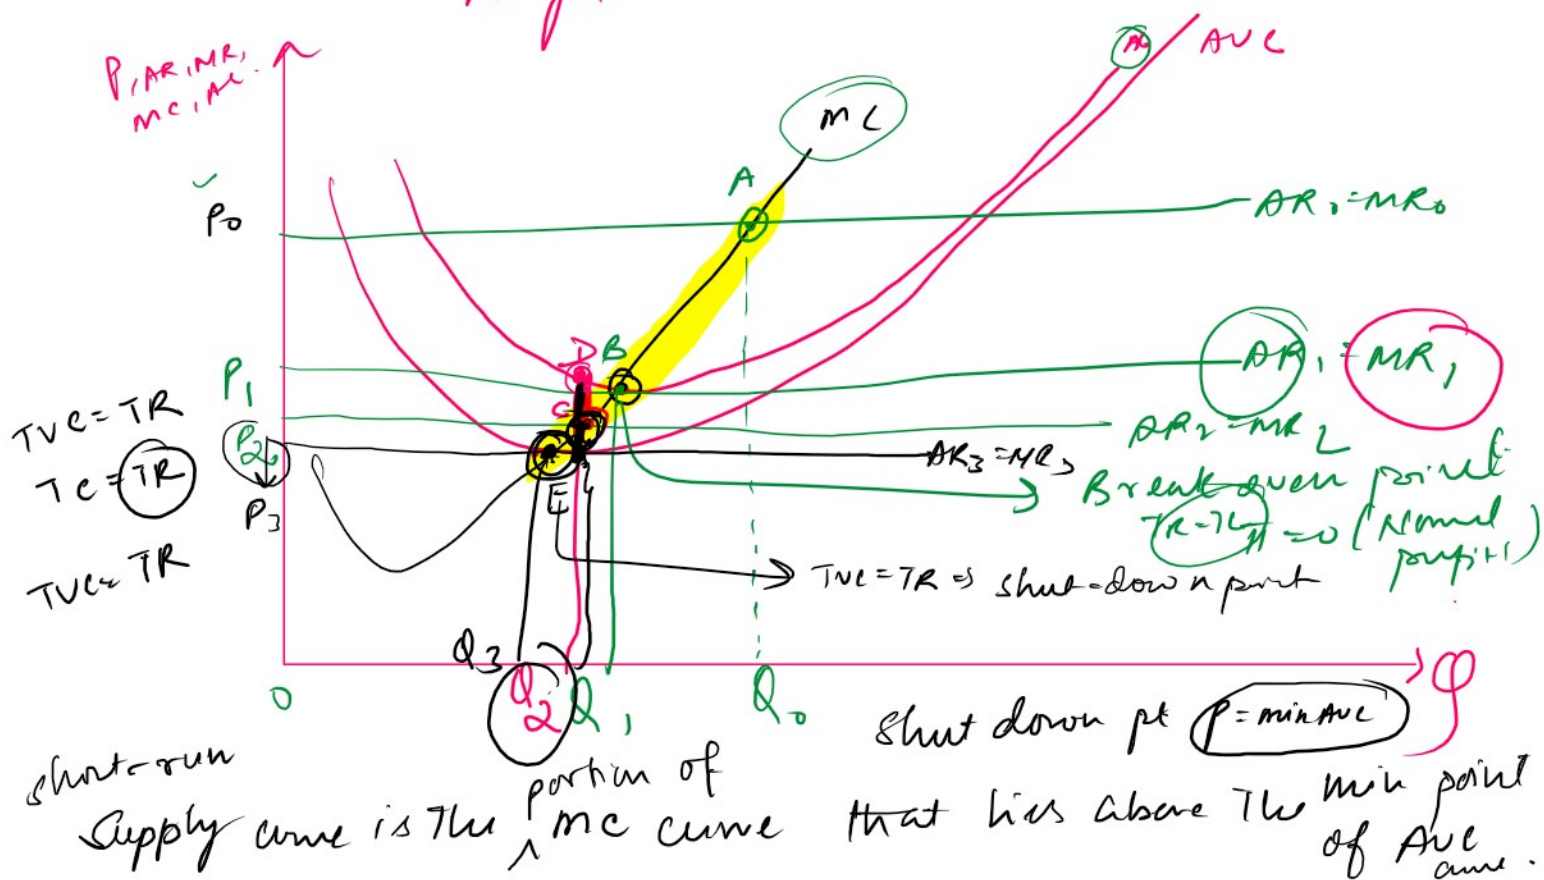 P, AR, MR,
MC, AC.
AC
AVC
MC
A
P₀
AR₀=MR₀
D
B
P₁
AR₁ = MR₁
TVC = TR
C
P₂
AR₂=MR₂
AR₃=MR₃
TC = TR
P₃
E
Break even point
TR=TC π=0 (Normal
profit)
TVC= TR
TVC=TR ⇒ shut-down point
Q₃
0
Q₂
Q₁
Q₀
Q
shut down pt P=minAVC
short-run
supply curve is the portion of MC curve that lies above the min point
of AVC
curve.